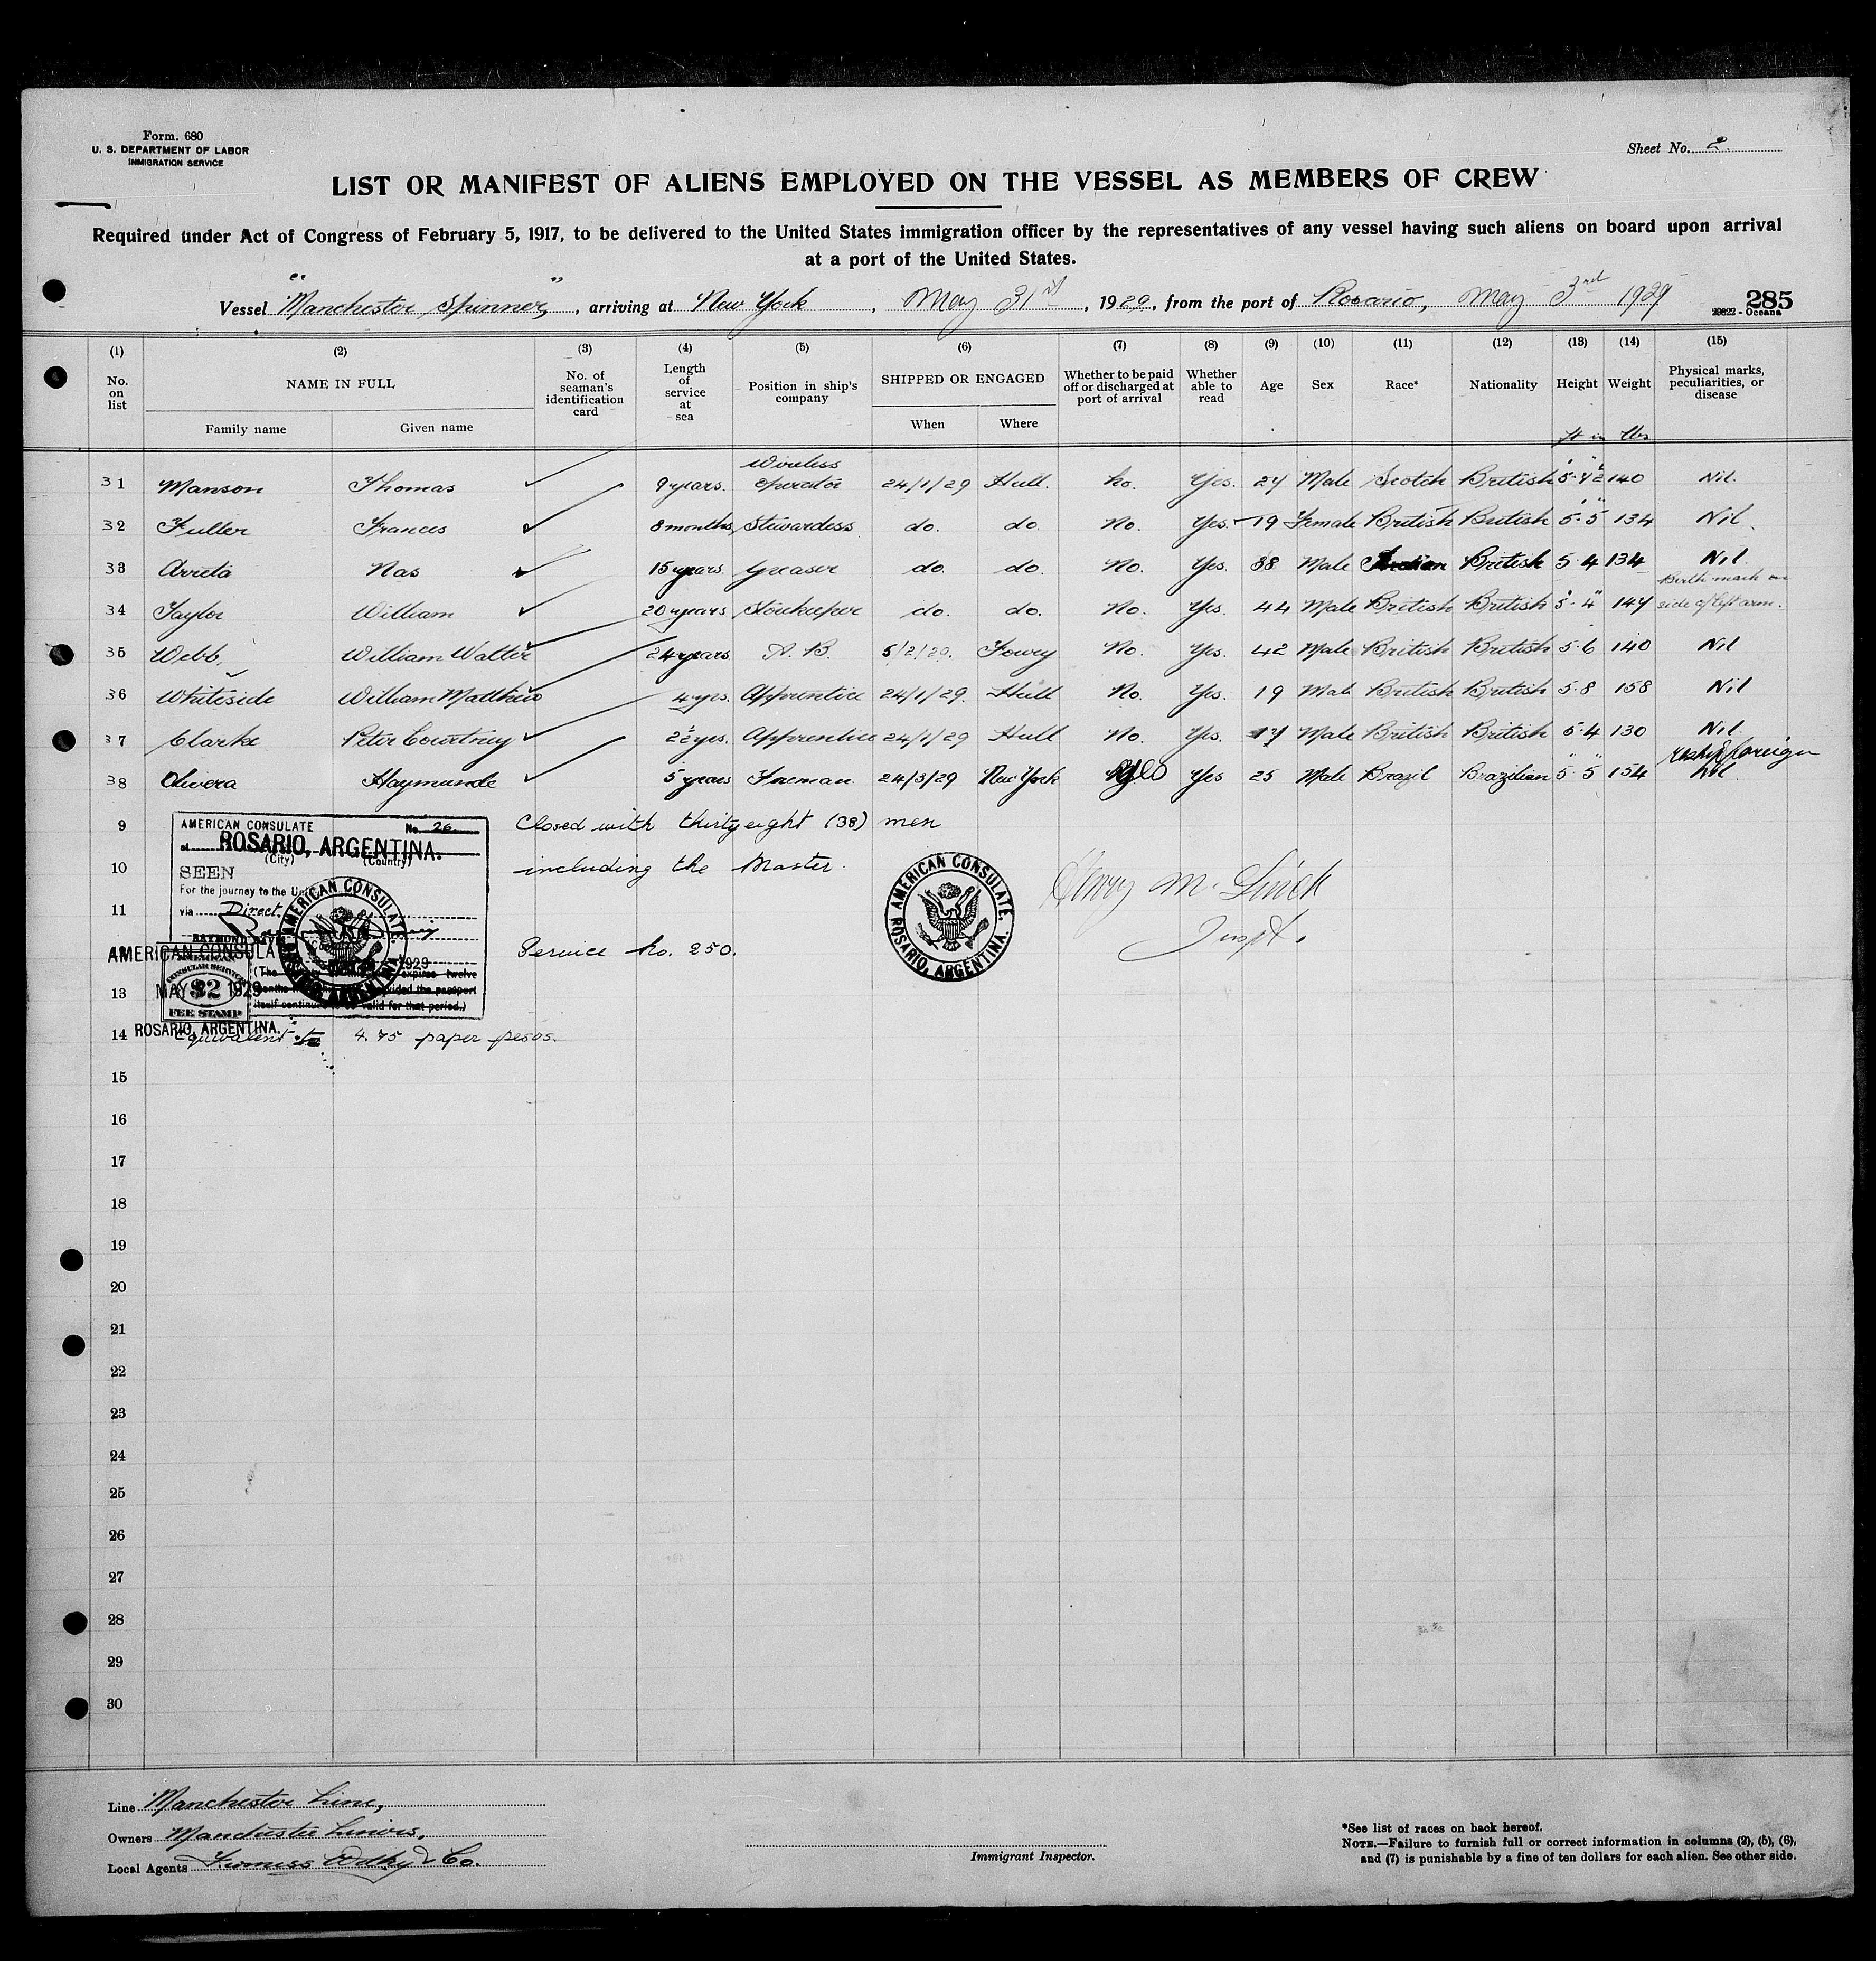 Form. 680
U. S. DEPARTMENT OF LABOR
INMIGRATION SERVICE
Sheet No. 2
LIST OR MANIFEST OF ALIENS EMPLOYED ON THE VESSEL AS MEMBERS OF CREW
Required under Act of Congress of February 5, 1917, to be delivered to the United States immigration officer by the representatives of any vessel having such aliens on board upon arrival
at a port of the United States.
Vessel "Manchester Spinner", arriving at New York, May 31st, 1929, from the port of Rosario, May 3rd 1929
285
29822 - Oceana
(1) (2) (3) (4) (5) (6) (7) (8) (9) (10) (11) (12) (13) (14) (15)
No. on list
NAME IN FULL
Family name Given name
No. of seaman's identification card
Length of service at sea
Position in ship's company
SHIPPED OR ENGAGED
When Where
Whether to be paid off or discharged at port of arrival
Whether able to read
Age Sex Race* Nationality Height Weight
Physical marks, peculiarities, or disease
ft in lbs
31 Manson Thomas 9 years. Wireless Operator 24/1/29 Hull. No. Yes. 27 Male Scotch British 5-7½ 140 Nil.
32 Fuller Frances 8 months Stewardess do. do No. Yes. 19 Female British British 5-5 134 Nil.
33 Nas 15 years Greaser do. do. No. Yes. 38 Male British 5 4 134 Nil.
34 Taylor William 20 years Storekeeper do. do. No. Yes. 44 Male British British 5-4 147 Birth mark on side of left arm.
35 Webb, William Walter 24 years A. B. 5/2/29. Fowey No. Yes. 42 Male British British 5 6 140 Nil
36 Whiteside William Matthew 4 yrs. Apprentice 24/1/29. Hull No. Yes. 19 Male British British 5-8 158 Nil
37 Clarke Peter Courtney 2½ yrs. Apprentice 24/1/29 Hull No. Yes. 17 Male British British 5-4 130 Nil.
38 Olivera Haymunde 5 years Fireman 24/3/29 New York Yes Yes 25 Male Brazil Brazilian 5 5 154 Nil. foreign
9 Closed with thirty eight (38) men
10 including the Master.
11
Service No. 250.
13
14 Equivalent to 4.75 paper pesos.
AMERICAN CONSULATE No. 26
at ROSARIO, ARGENTINA.
(City) (Country)
SEEN
For the journey to the
via Direct.
AMERICAN CONSUL
MAY 1929
ROSARIO, ARGENTINA.
CONSULAR SERVICE
$2
FEE STAMP
expires twelve
itself valid for that period.)
AMERICAN CONSULATE. ROSARIO, ARGENTINA.
AMERICAN CONSULATE. ROSARIO, ARGENTINA.
Inspt.
15
16
17
18
19
20
21
22
23
24
25
26
27
28
29
30
Line Manchester Line,
Owners Manchester Liners.
Local Agents Furness Withy & Co.
Immigrant Inspector.
*See list of races on back hereof.
NOTE.—Failure to furnish full or correct information in columns (2), (5), (6),
and (7) is punishable by a fine of ten dollars for each alien. See other side.